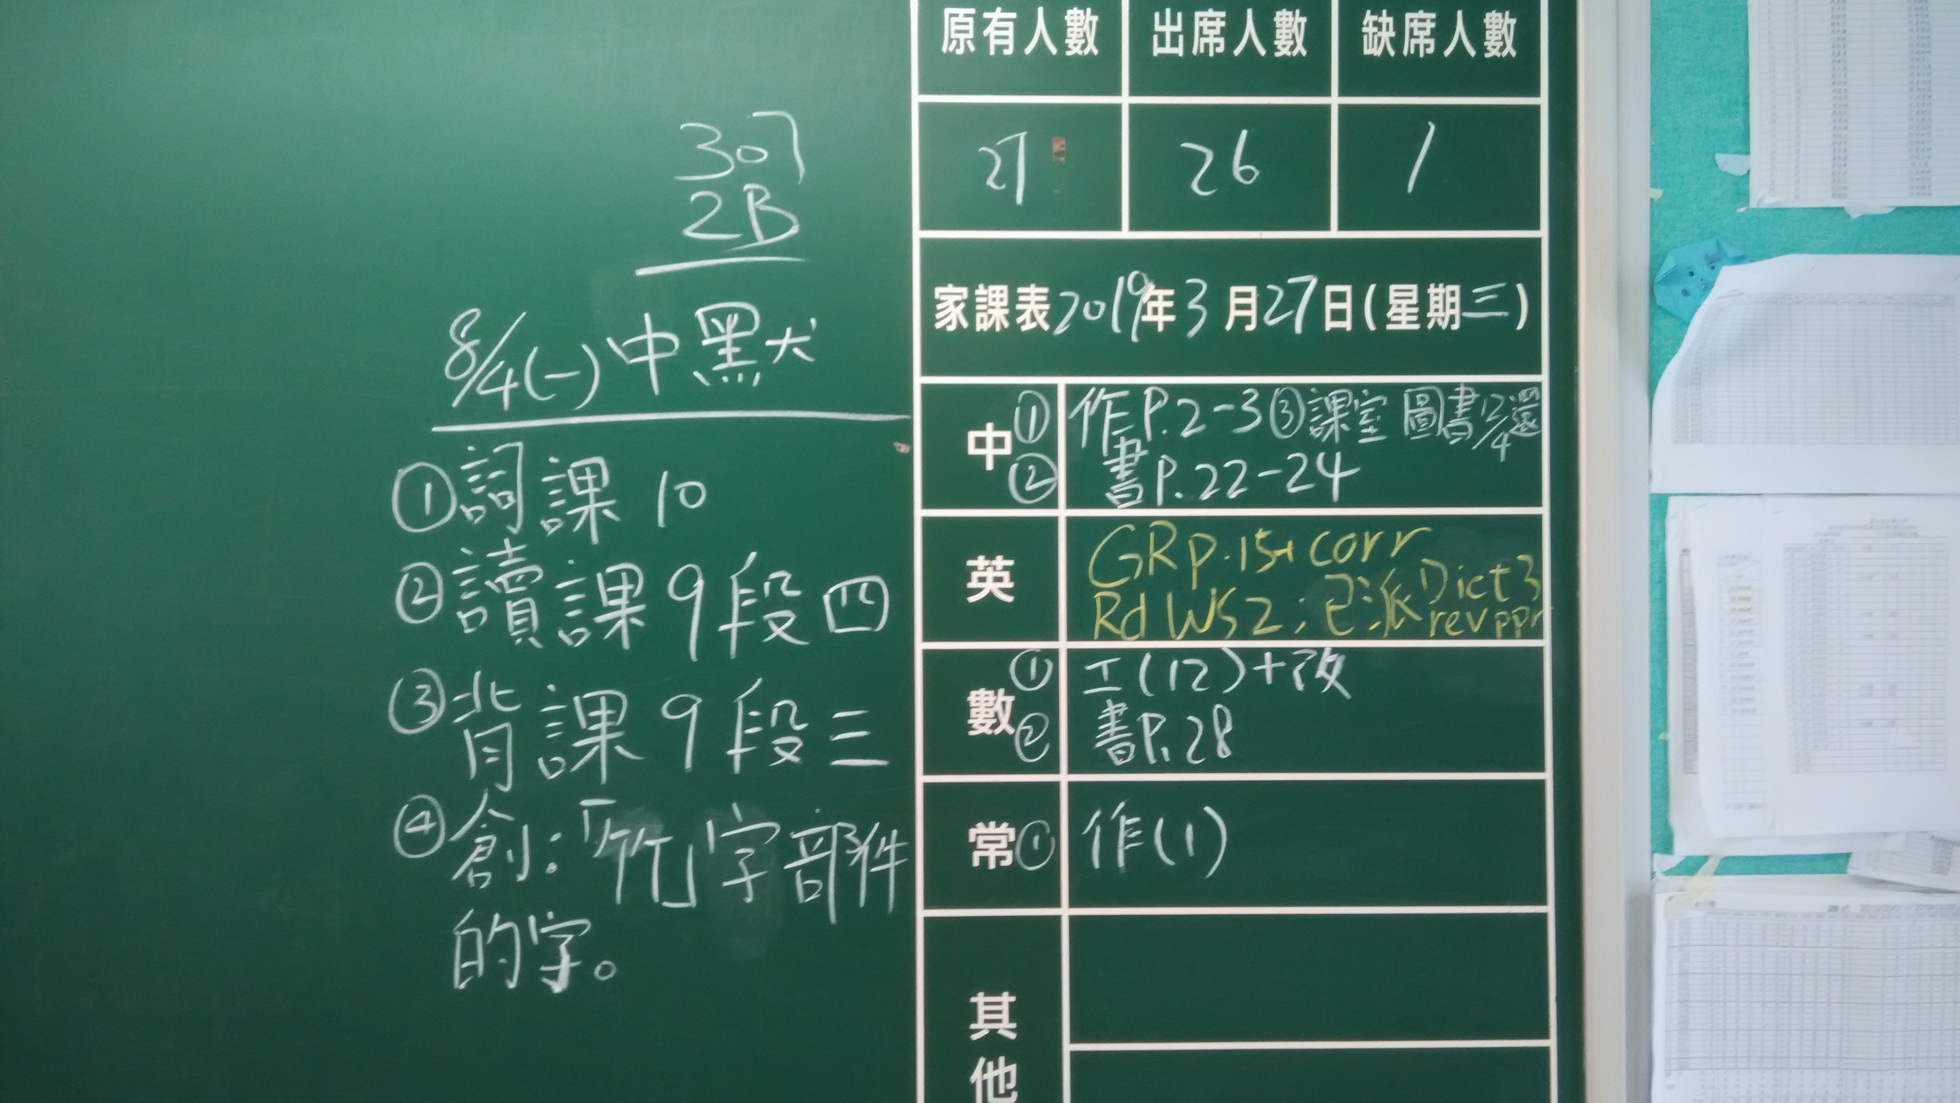 307
2B
8/4(一)中默
①詞課10
②讀課9段四
③背課9段三
④創:「竹」字部件
的字。
原有人數 出席人數 缺席人數
27 26 1
家課表2019年3月27日(星期三)
中 ①作P.2-3③課室圖書12/4還
②書P.22-24
英 GR p.15+corr
Rd WS2;已派Dict 3
rev ppr
數 ①工(12)+改
②書P.28
常 ①作(1)
其他